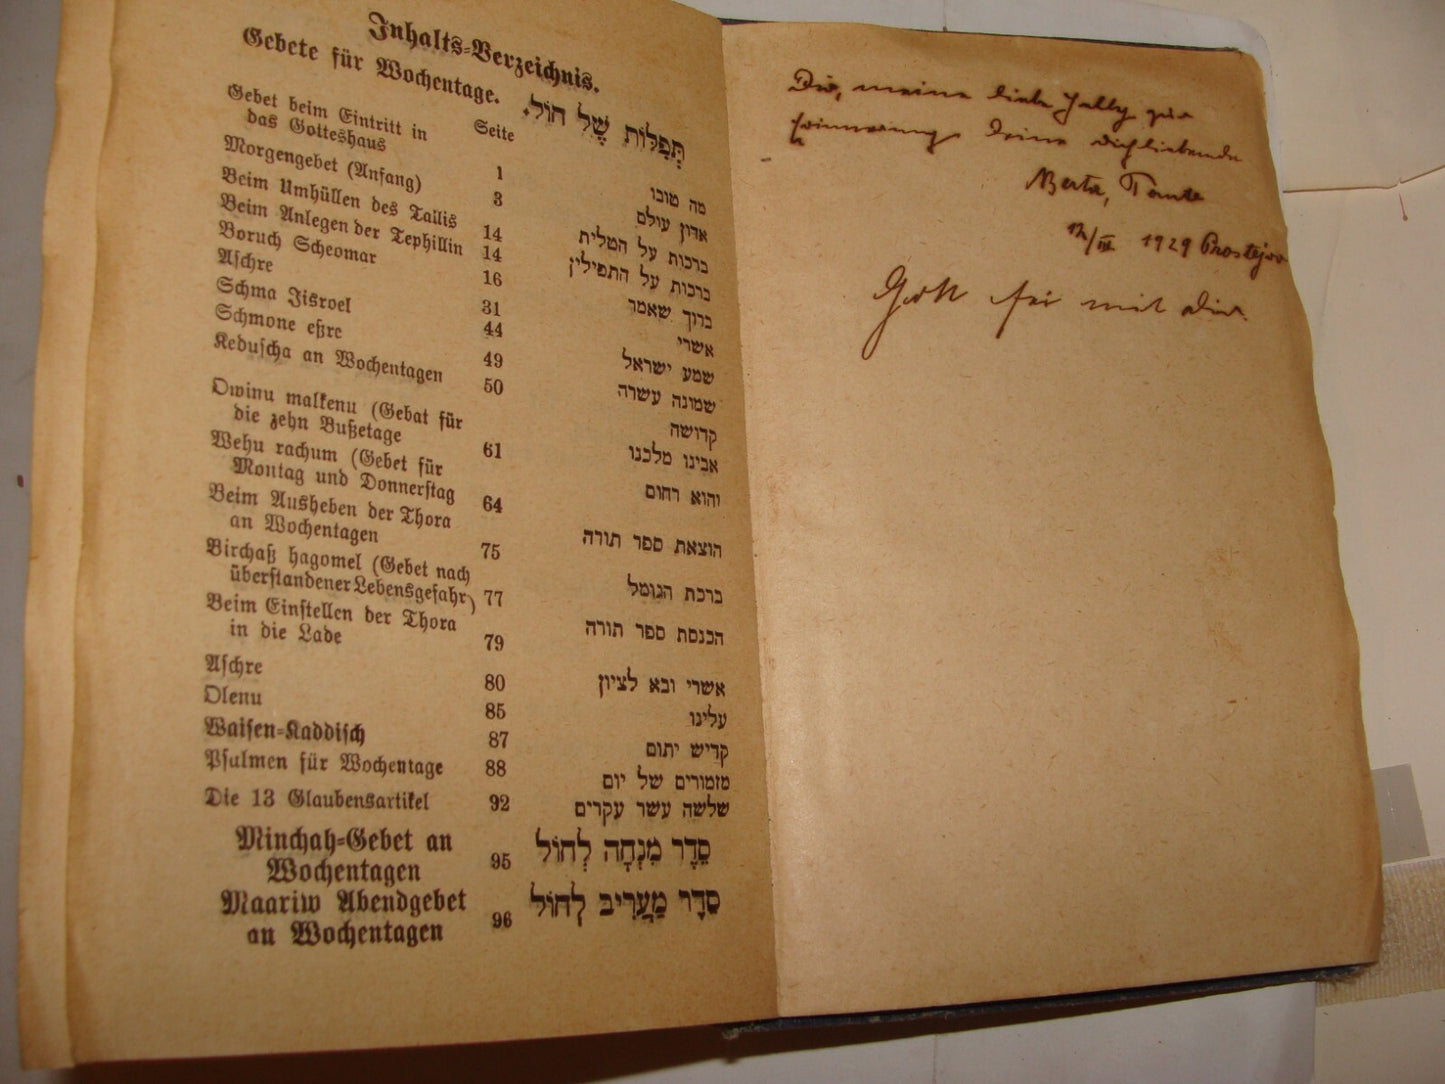 Inhalts-Verzeichnis.
Gebete für Wochentage. תְּפִלּוֹת שֶׁל חוֹל.
Seite
Gebet beim Eintritt in
das Gotteshaus 1 מה טובו
Morgengebet (Anfang) 3 אדון עולם
Beim Umhüllen des Tallis 14 ברכות על הטלית
Beim Anlegen der Tephillin 14 ברכות על התפילין
Boruch Scheomar 16 ברוך שאמר
Aschre 31 אשרי
Schma Jisroel 44 שמע ישראל
Schmone eßre 49 שמונה עשרה
Keduscha an Wochentagen 50 קדושה
Owinu malkenu (Gebat für
die zehn Bußetage 61 אבינו מלכנו
Wehu rachum (Gebet für
Montag und Donnerstag 64 יהוא רחום
Beim Ausheben der Thora
an Wochentagen 75 הוצאת ספר תורה
Birchaß hagomel (Gebet nach
überstandener Lebensgefahr) 77 ברכת הגומל
Beim Einstellen der Thora
in die Lade 79 הכנסת ספר תורה
Aschre 80 אשרי ובא לציון
Olenu 85 עלינו
Waisen-Kaddisch 87 קדיש יתום
Psalmen für Wochentage 88 מזמורים של יום
Die 13 Glaubensartikel 92 שלשה עשר עקרים
Minchah-Gebet an
Wochentagen 95 סֵדֶר מִנְחָה לְחוֹל
Maariw Abendgebet
an Wochentagen 96 סֵדֶר מַעֲרִיב לְחוֹל
Dir, meine liebe Jelly zur
Erinnerung deine dichliebende
Berta, Tante
12/IV 1929 Prostejov
Gott sei mit Dir.